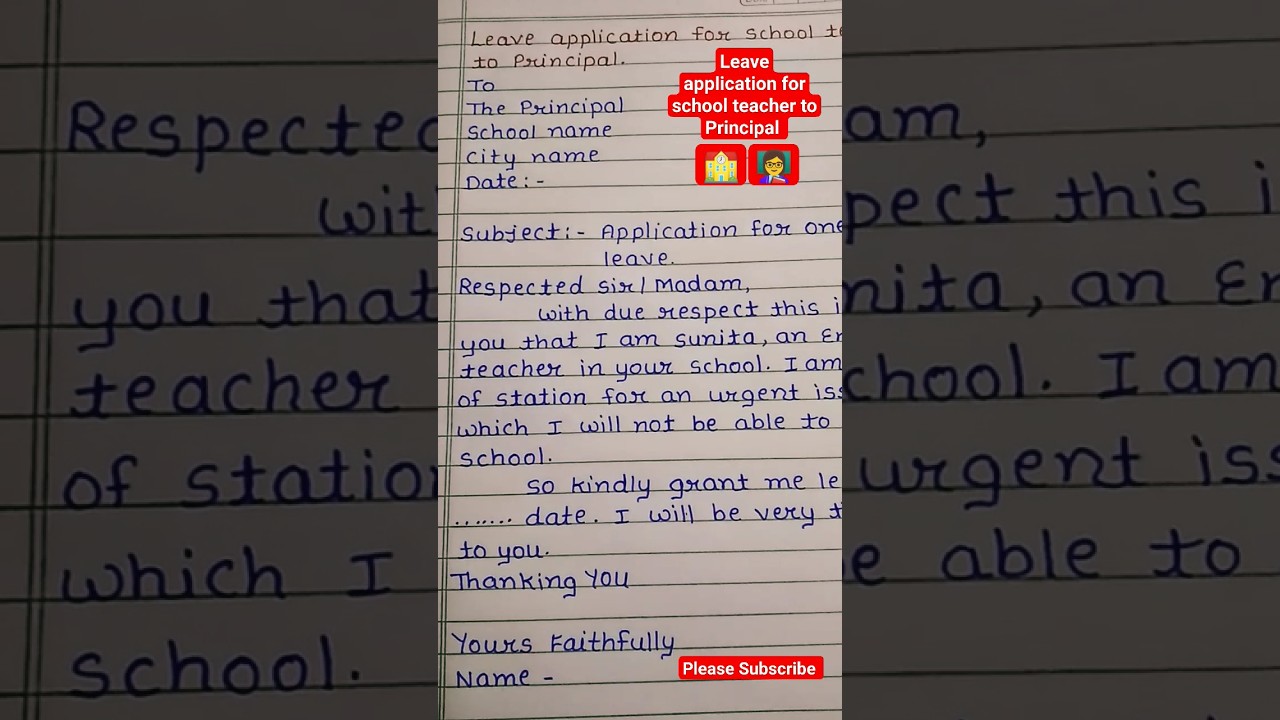 Leave application for school te
to Principal.
To
The Principal
School name
City name
Date:-
Subject:- Application for one
leave.
Respected Sir/Madam,
with due respect this i
you that I am sunita, an En
teacher in your school. I am
of station for an urgent iss
which I will not be able to
school.
So kindly grant me le
....... date. I will be very t
to you.
Thanking You
Yours Faithfully
Name -
Leave
application for
school teacher to
Principal
Please Subscribe
Respected
am,
wit
pect this i
you that
nita, an En
teacher
chool. I am
of station
urgent iss
which I
e able to
school.